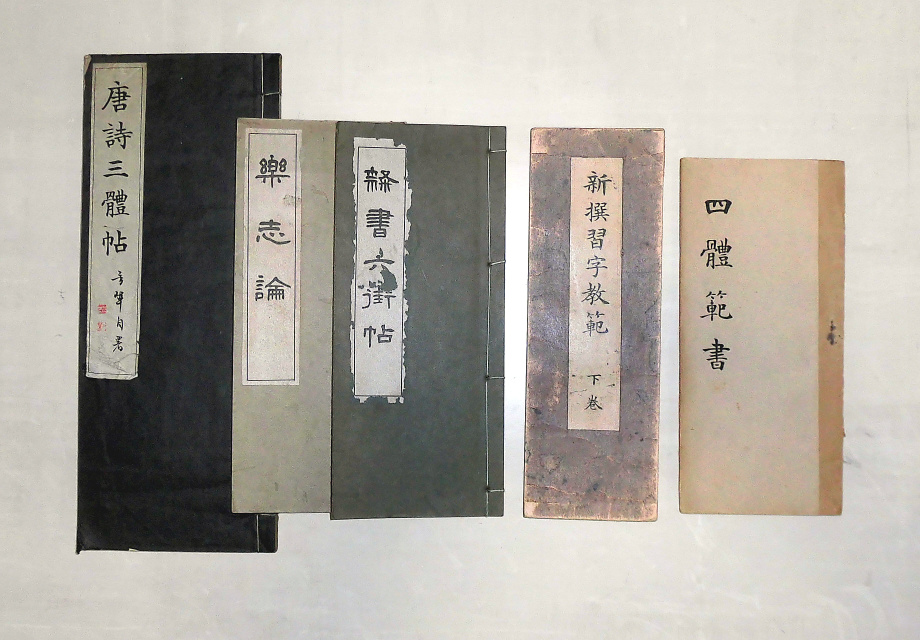 唐詩三體帖
樂志論
隸書六街帖
新撰習字教範
下卷
四體範書